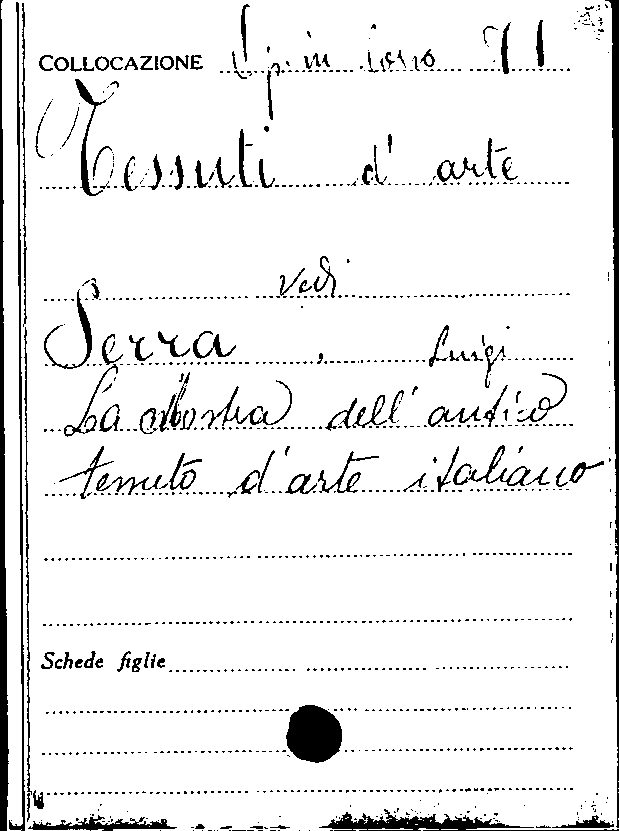 COLLOCAZIONE Sp. in corso 71
Tessuti d'arte
vedi
Serra, Luigi
La Mostra dell'antico
tessuto d'arte italiano
Schede figlie